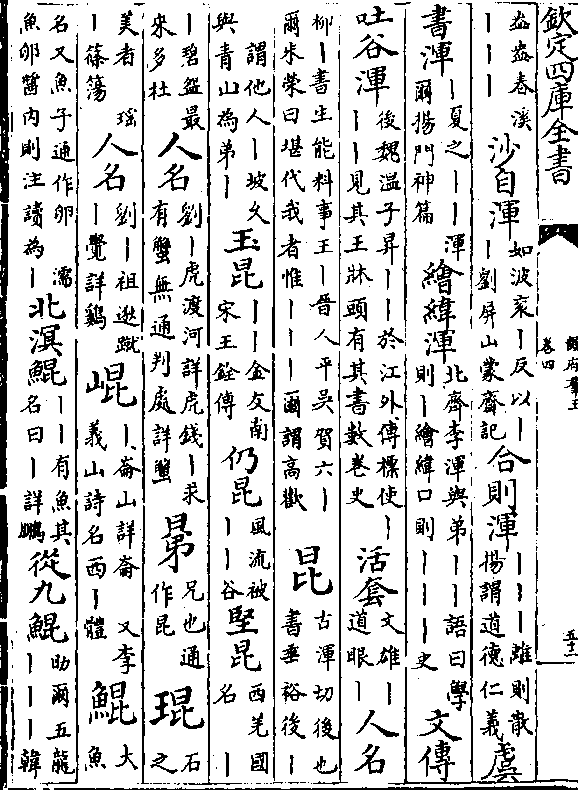 欽定四庫全書
韻府羣玉
卷四
五十二
盎盎春溪
｜｜｜
沙自渾
如波衮｜反以｜
｜劉屏山蒙齋記
合則渾
｜｜｜離則散
揚謂道德仁義
虞
書渾
｜夏之｜｜渾
爾揚門神篇
繪緯渾
北齊李渾與弟｜｜語曰學
則｜繪緯口則｜｜｜｜史
文傳
吐谷渾
後魏溫子昇｜｜於江外傳標使｜
｜｜見其王牀頭有其書數卷史
活套
文雄｜
道眼｜
人名
柳｜書生能料事王｜晉人平吳賀六｜
爾朱榮曰堪代我者惟｜｜｜爾謂高歡
昆
古渾切後也
書垂裕後｜
謂他人｜坡
與青山為弟｜
玉昆
｜｜金友南
宋王銓傳
仍昆
風流被
｜｜谷
堅昆
西羌國
名｜
｜碧盌最
來多杜
人名
劉｜虎渡河詳虎錢｜求
有蟹無通判處詳蟹
晜
兄也通
作昆
琨
石
之
美者瑶
｜篠簜
人名
劉｜祖逖蹴
｜覺詳鷄
崐
｜崙山詳崙又李
義山詩名西｜體
鯤
大
魚
名又魚子通作卵濡
魚卵醬内則注讀為｜
北溟鯤
｜｜有魚其
名曰｜詳鵬
從九鯤
助爾五龍
｜｜｜韓